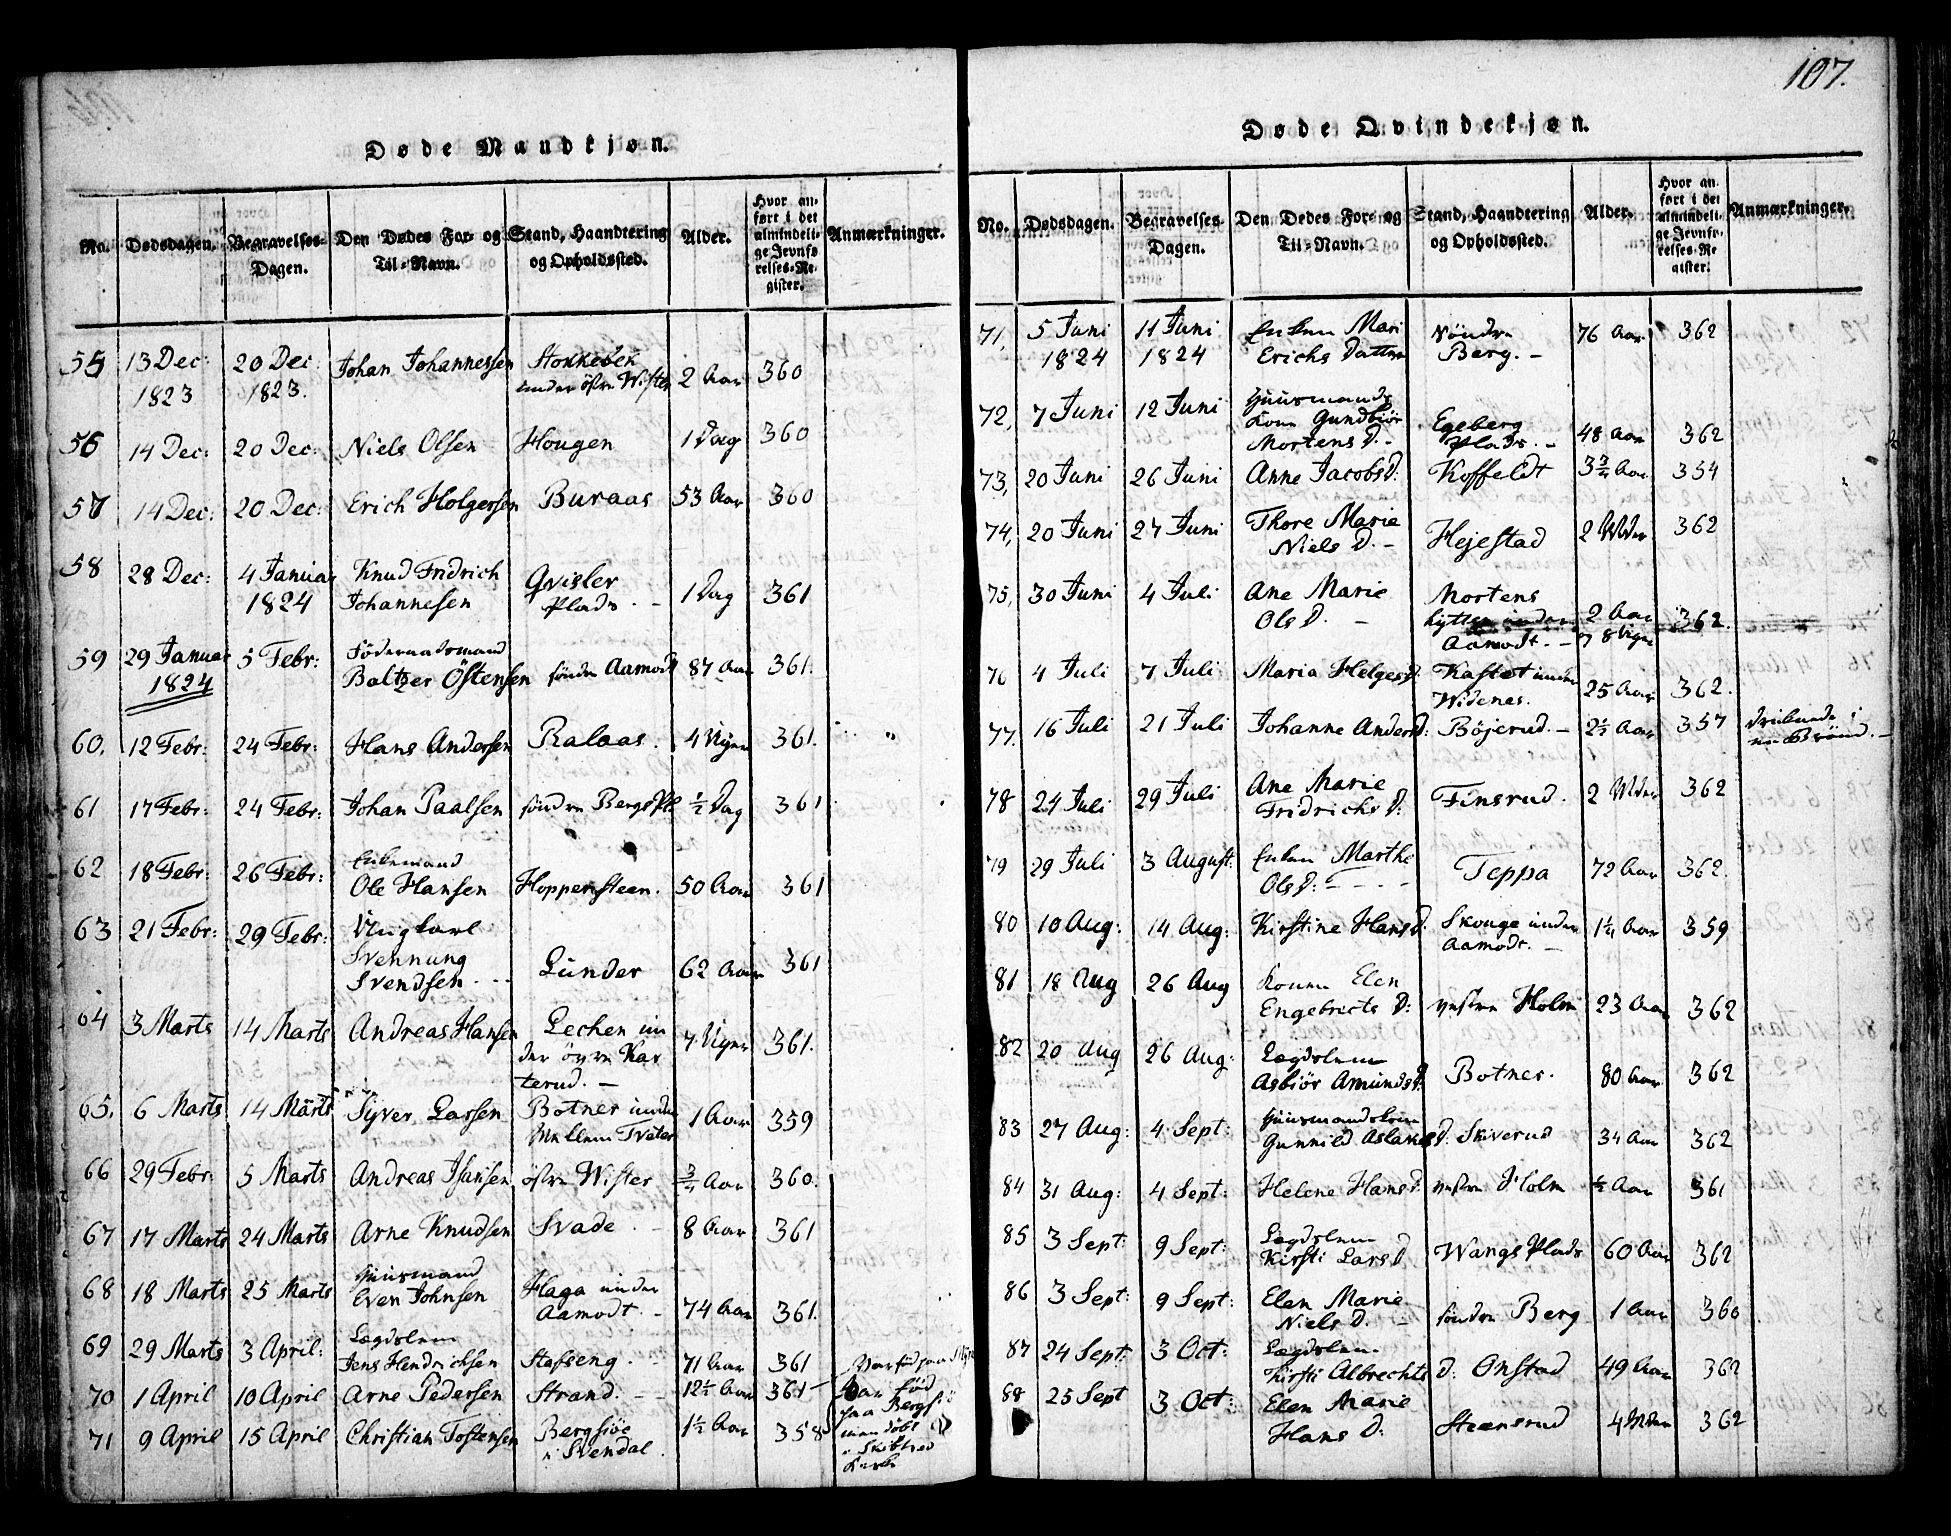 107.
Døde Mandkjøn.
No. Dødsdagen. Begravelses-Dagen. Den Dødes For- og Til-Navn. Stand, Haandtering og Opholdssted. Alder. Hvor anført i det almindelige Jevnførelses-Register. Anmærkninger.
55 13 Dec: 1823 20 Dec: 1823. Johan Johannessen Stokkebek under östre Wister 2 Aar 360
56 14 Dec: 20 Dec: Niels Olsen Hougen 1 Dag 360
57 14 Dec: 20 Dec: Erich Holgersen Buraas 53 Aar 360
58 28 Dec: 4 Januar 1824 Knud Fridrich Johannesen Qvisler Plads. - 1 Dag 361
59 29 Januar 1824 5 Febr: Födernadsmand Baltzer Östensen söndre Aamodt 87 Aar 361.
60. 12 Febr: 24 Febr: Hans Andersen Ralaas. 4 Uger 361.
61 17 Febr: 24 Febr: Johan Paalsen söndre Bergs Pl: ½ Dag 361
62 18 Febr: 26 Febr: Enkemand Ole Hansen Hoppensteen. 50 Aar 361
63 21 Febr: 29 Febr: Ungkarl Svennung Svendsen. - - Lunder 62 Aar 361
64 3 Marts 14 Marts Andreas Hansen Lechen under övre Karterud. - 7 Uger 361.
65. 6 Marts 14 Marts Syver Larsen Botner under Mellem Tveter 1 Aar 359
66 29 Febr: 5 Marts Andreas Hansen östre Wister ¾ Aar 360.
67 17 Marts 24 Marts Arne Knudsen Svade. - 8 Aar 361
68 18 Marts 25 Marts Huusmand Even Johnsen Haga under Aamodt. - 74 Aar 361.
69 29 Marts 3 April: Lægdslem Jens Hendrichsen Stafseng. - 71 Aar 361
70 1 April 10 April Arne Pedersen Strand. - - 12½ Aar 361
71 9 April 15 April Christian Tostensen Bergsjöe i Svendal. 1½ Aar 358 Var född paa Bergsjö men döbt i Skibtved Kirke
Døde Qvindekjøn.
No. Dødsdagen. Begravelses-Dagen. Den Dødes For- og Til-Navn. Stand, Haandtering og Opholdssted. Alder. Hvor anført i det almindelige Jevnførelses-Register. Anmærkninger.
71, 5 Juni 1824 11 Juni 1824 Enken Mari Erichs Datter Nöndre Berg. - 76 Aar 362
72, 7 Juni 12 Juni Huusmands Kone Gundbiör Mortens D. - Egeberg Plads. - 48 Aar 362
73, 20 Juni 26 Juni Anne Jacobs D: Koffeldt 3¾ Aar 354
74, 20 Juni 27 Juni Thore Marie Niels D. - Hejestad 2 Mdr 362
75, 30 Juni 4 Juli Ane Marie Ols D. - Mortens hytten under Aamodt. - 2 Aar 8 Uger 362.
76 4 Juli 7 Juli Maria Helges D: Kastet under Widenes. 25 Aar 362.
77. 16 Juli 21 Juli Johanne Anders D: Böjerud. - 2½ Aar 357 druknede i en Brönd. -
78 24 Juli 29 Juli Ane Marie Fridrichs D: Finsrud. 2 Mdr 362
79 29 Juli 3 August: Enken Marthe Ols D: - - - Teppa 72 Aar 362.
80 10 Aug: 14 Aug: Kirstine Hans D. Skouge under Aamodt. - 1¼ Aar 359
81 18 Aug 26 Aug Konen Elen Engebrects D: vestre Holm 23 Aar 362
82 20 Aug 26 Aug: Lægdslem Asbiör Amunds D. Botner. 80 Aar 362
83 27 Aug: 4 Sept: Huusmandskone Gunnild Aslaks D. Skiverud 34 Aar 362
84 31 Aug: 4 Sept: Helene Hans D. vestre Holm ½ Aar 361
85 3 Sept: 9 Sept: Lægdslem Kirsti Lars D Wangs Plads 60 Aar 362
86 3 Sept: 9 Sept: Elen Marie Niels D. - söndre Berg 1 Aar 360
87 24 Sept: 3 Oct: Lægdslem Kirsti Albrechts D: Onstad 49 Aar 362
88 25 Sept 3 Oct: Elen Marie Hans D: Steensrud 4 Mdr 362